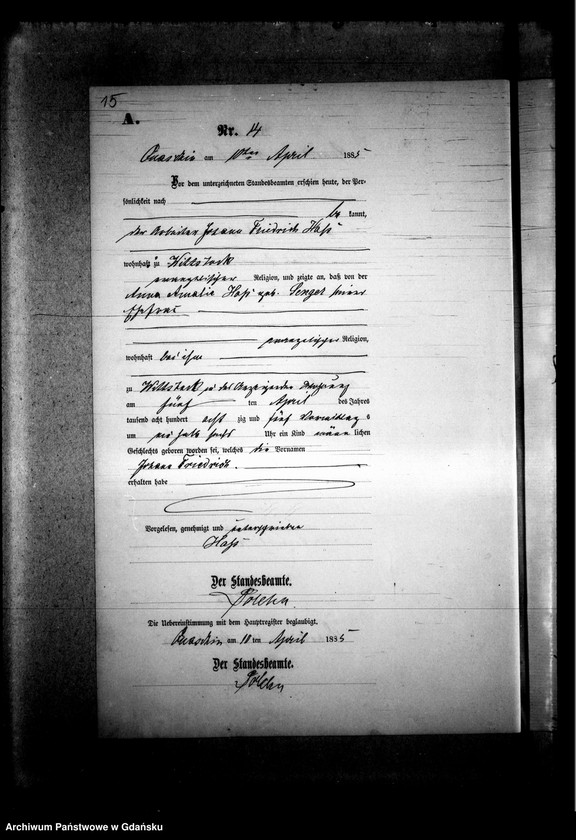 15
A.
Nr. 14
Quaschin am 10ten April 1885
Vor dem unterzeichneten Standesbeamten erschien heute, der Per-
sönlichkeit nach
be kannt,
der Arbeiter Johann Friedrich Haß
wohnhaft zu Wittstock
evangelischer Religion, und zeigte an, daß von der
Anna Amalie Haß geb. Senger seiner
Ehefrau
evangelischer Religion,
wohnhaft bei ihm
zu Wittstock in des Anzeigenden Wohnung
am fünf ten April des Jahres
tausend acht hundert acht zig und fünf Vormittags
um ein halb sechs Uhr ein Kind männ lichen
Geschlechts geboren worden sei, welches die Vornamen
Johann Friedrich.
erhalten habe
Vorgelesen, genehmigt und unterschrieben
Haß
Der Standesbeamte.
Die Uebereinstimmung mit dem Hauptregister beglaubigt.
Quaschin am 10 ten April 1885
Der Standesbeamte.
Archiwum Państwowe w Gdańsku